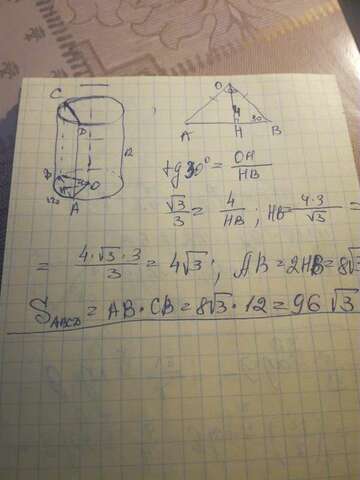 C
D
12
B
O
120
A
O
4
30
A
H
B
tg 30° = OH/HB
√3/3 = 4/HB ; HB = 4·3/√3 =
= 4·√3·3/3 = 4√3 ; AB = 2HB = 8√3
S_ABCD = AB · CB = 8√3 · 12 = 96√3